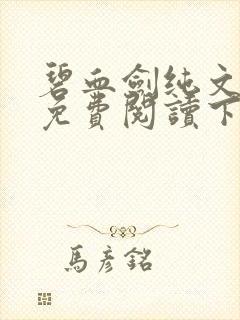 碧血劍純文
免費閱讀下
馬彥銘